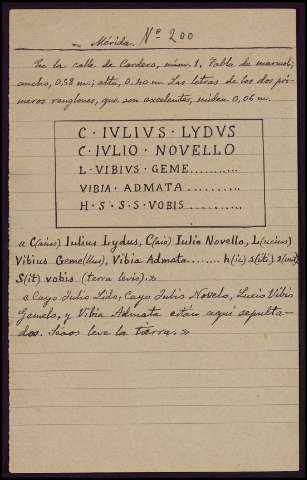 Mérida. Nº 200
En la calle de Cardero, núm. 1. Tabla de marmol;
ancho, 0,58 m.; alta, 0.40 m. Las letras de los dos pri-
meros renglones, que son excelentes, miden 0,06 m.
C · IVLIVS · LYDVS
C · IVLIO · NOVELLO
L · VIBIVS · GEME..........
VIBIA · ADMATA ..........
H · S · S · S · VOBIS ..........
« C(aius) Iulius Lydus, C(aio) Iulio Novello, L(ucius)
Vibius Geme(llus), Vibia Admata........ h(ic) s(iti) s(unt)
S(it) vobis (terra levis).»
« Cayo Julio Lido, Cayo Julio Novelo, Lucio Vibio
Gemelo, y Vibia Admata están aquí sepulta-
dos. Séaos leve la tierra.»